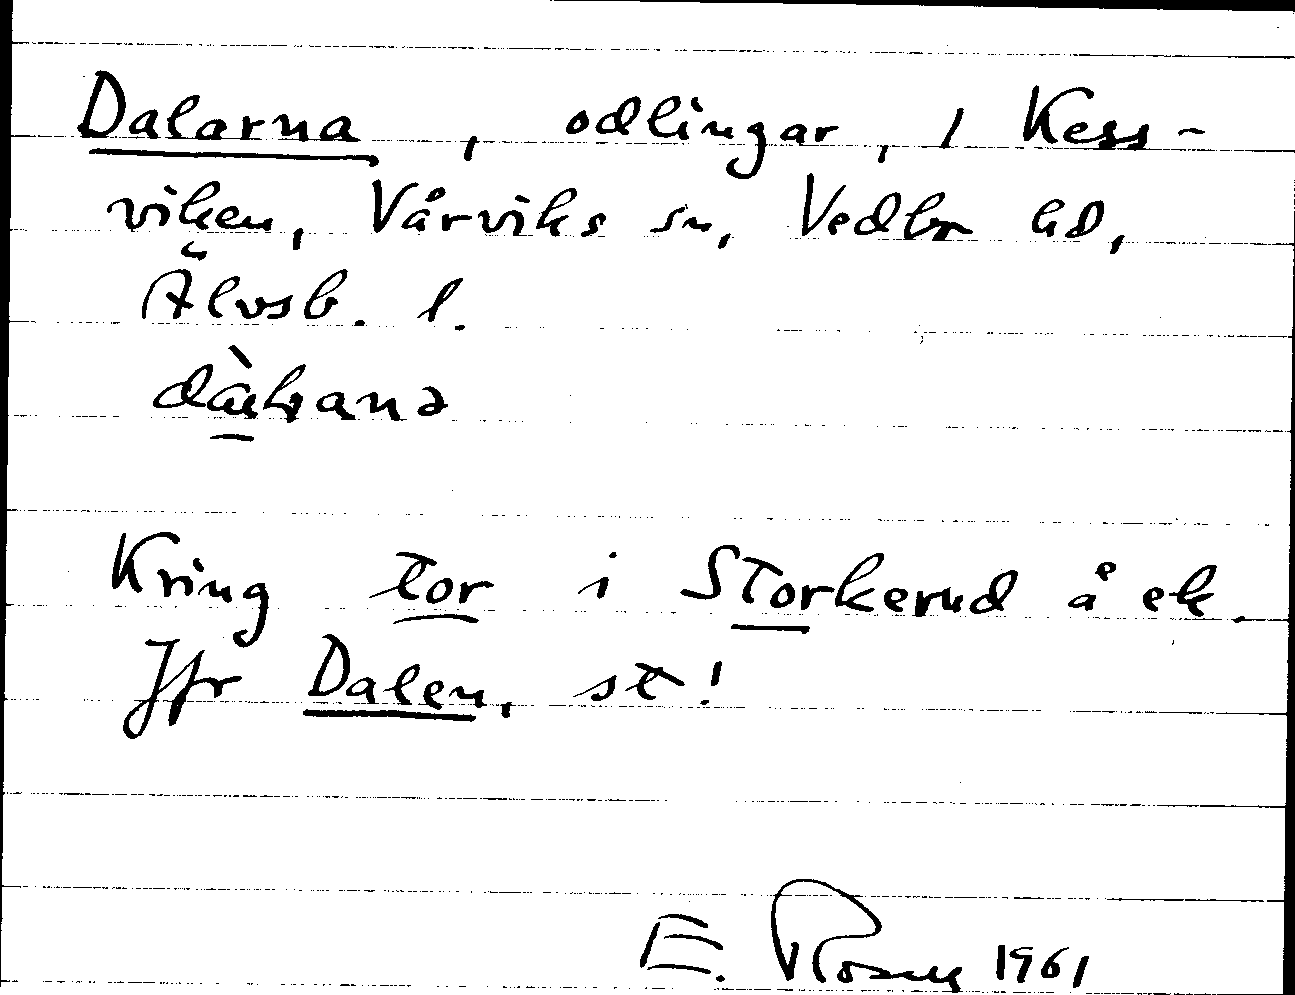 Dalarna, odlingar, 1 Kess-
viken, Vårviks sn, Vedbo hd,
Älvsb. l.
Kring tor i Storkerud å ek.
Jfr Dalen, st!
E. 1961